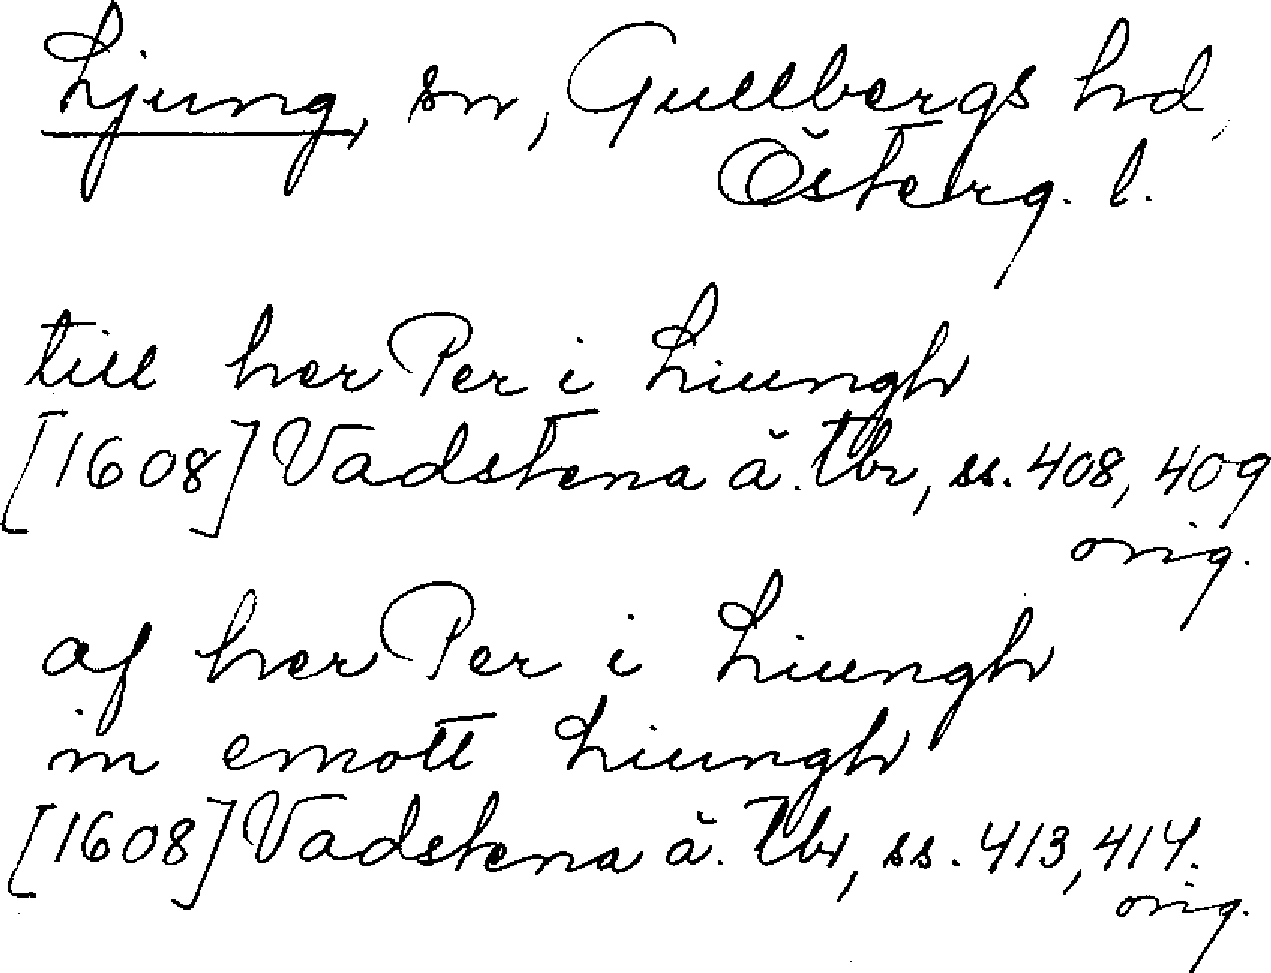 Ljung, sn, Gullbergs hd,
Österg. l.
till her Per i Liungh
[1608] Vadstena ä. tbr, ss. 408, 409
orig.
af her Per i Liungh
in emott Liungh
[1608] Vadstena ä. tbr, ss. 413, 414.
orig.